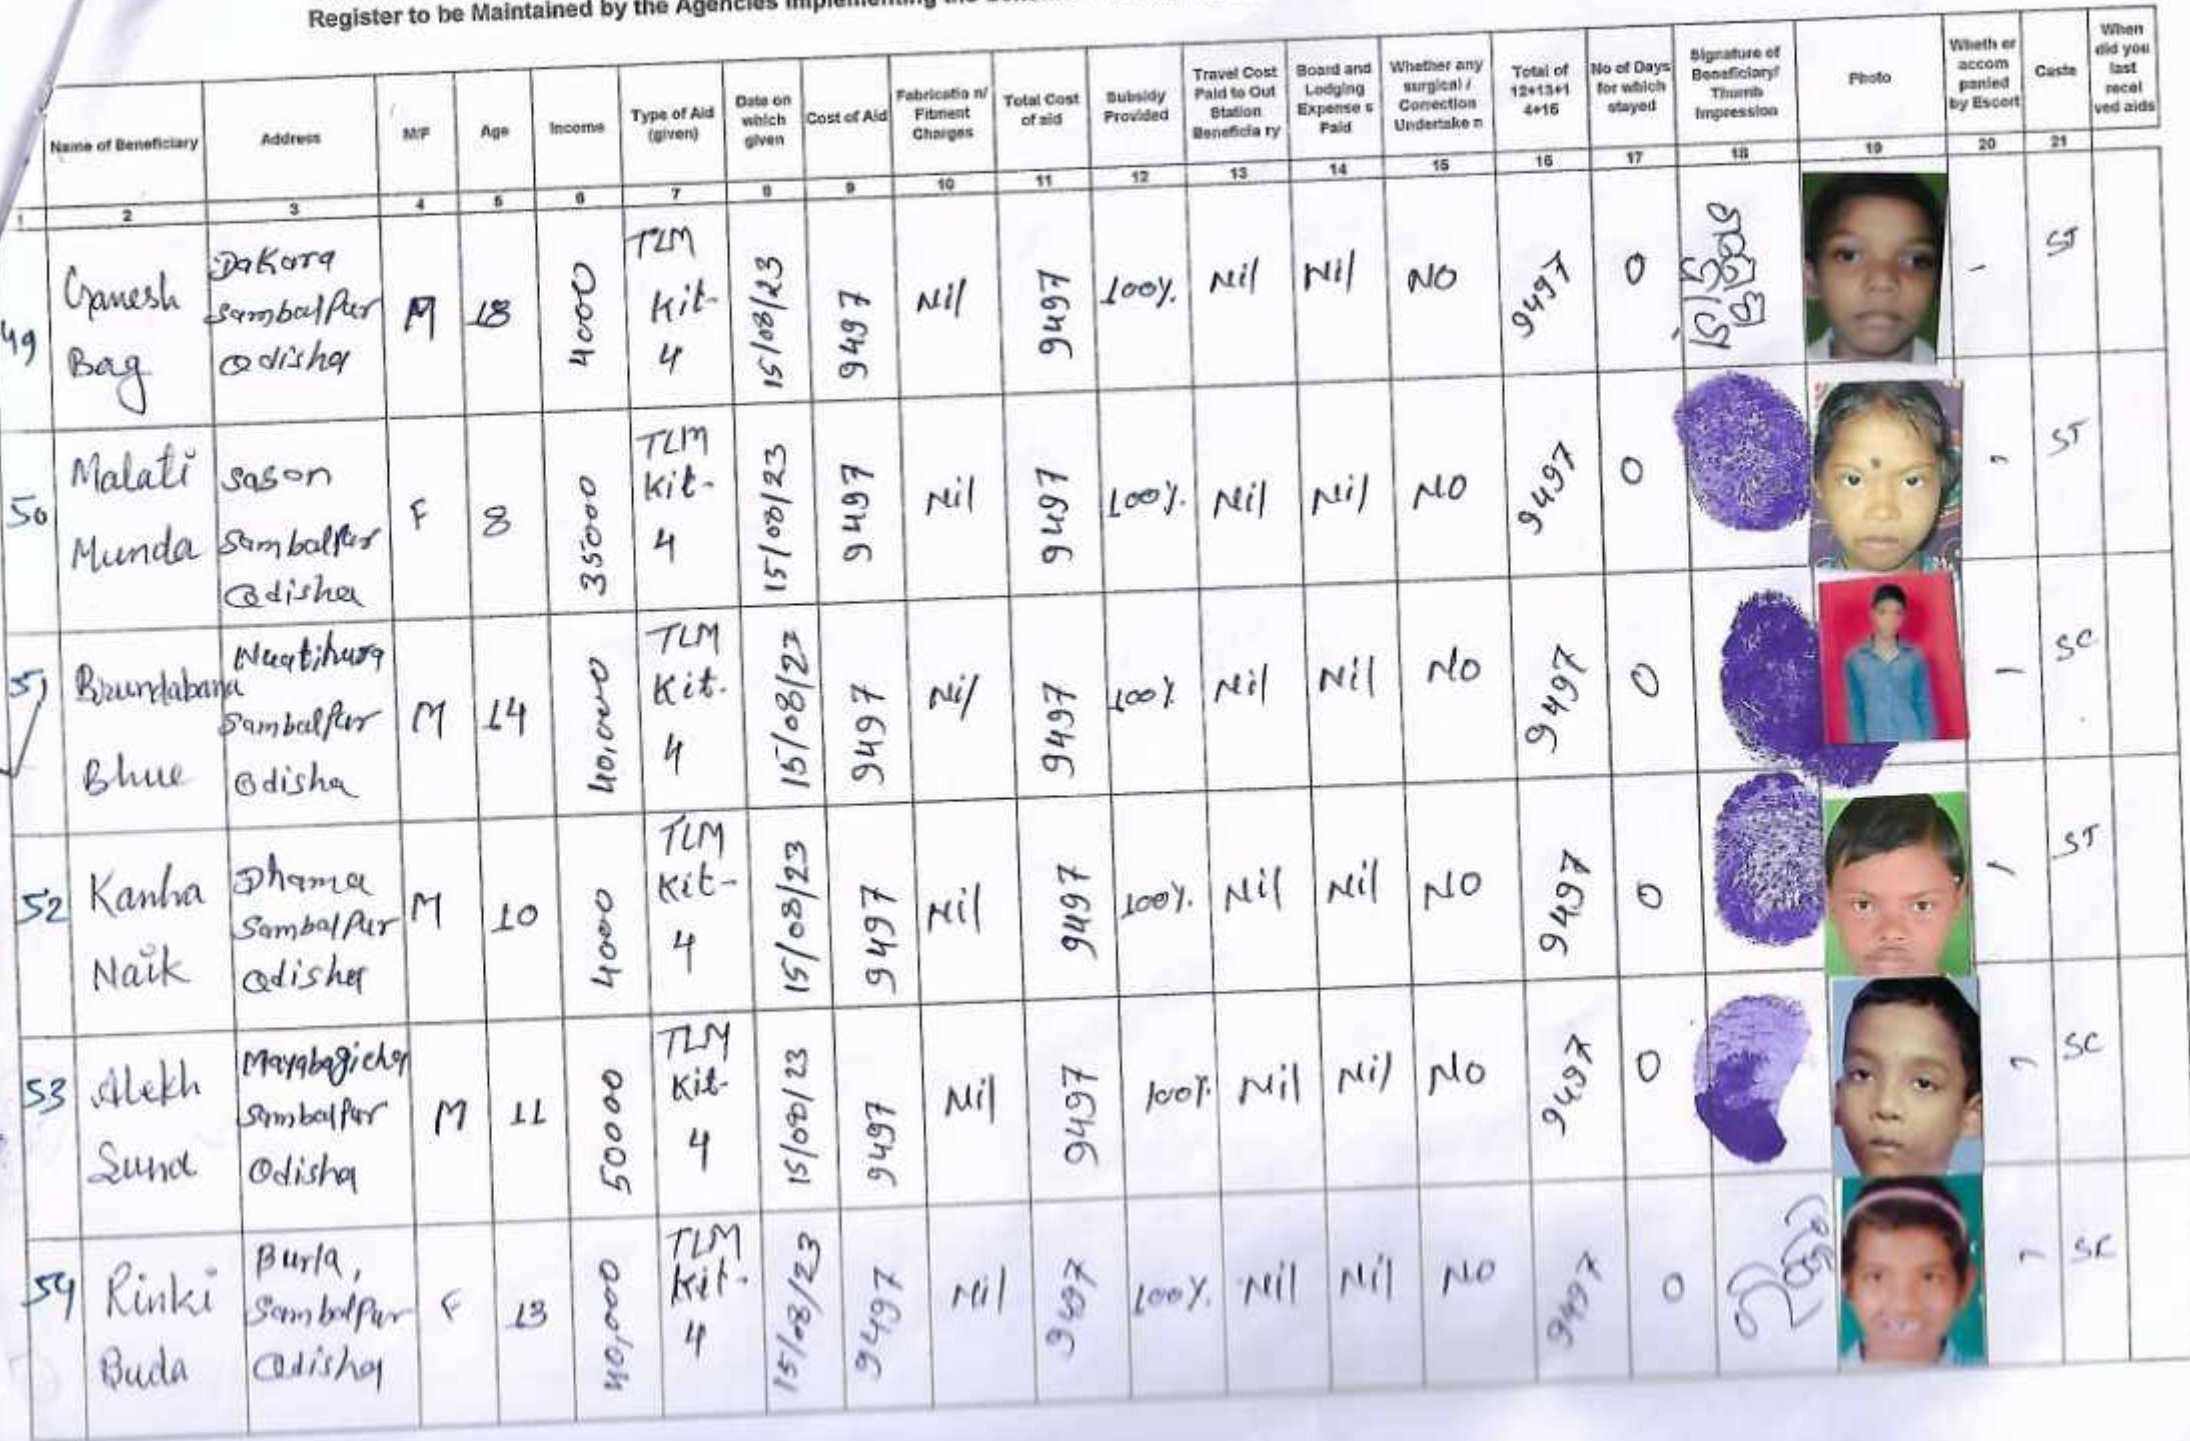 Register to be Maintained by the Agencies Implementing the
Name of Beneficiary Address M/F Age Income Type of Aid (given) Date on which given Cost of Aid Fabricatio n/ Fitment Charges Total Cost of aid Subsidy Provided Travel Cost Paid to Out Station Beneficia ry Board and Lodging Expense s Paid Whether any surgical / Correction Undertake n Total of 12+13+1 4+16 No of Days for which stayed Signature of Beneficiary/ Thumb Impression Photo Wheth er accom panied by Escort Caste When did you last recei ved aids
1 2 3 4 5 6 7 8 9 10 11 12 13 14 15 16 17 18 19 20 21
49 Ganesh Bag Dakara Sambalpur Odisha M 18 4000 TLM Kit- 4 15/08/23 9497 Nil 9497 100% Nil Nil NO 9497 0 - ST
50 Malati Munda Sason Sambalpur Odisha F 8 35000 TLM Kit- 4 15/08/23 9497 Nil 9497 100% Nil Nil NO 9497 0 - ST
51 Brundabana Bhue Sambalpur Odisha M 14 40,000 TLM Kit. 4 15/08/23 9497 Nil 9497 100% Nil Nil No 9497 0 - SC
52 Kanha Naik Dhama Sambalpur Odisha M 10 4000 TLM Kit- 4 15/08/23 9497 Nil 9497 100% Nil Nil NO 9497 0 - ST
53 Alekh Suna Sambalpur Odisha M 11 50000 TLM Kit- 4 15/08/23 9497 Nil 9497 100% Nil Nil No 9497 0 - SC
54 Rinki Buda Burla, Sambalpur Odisha F 13 40,000 TLM Kit- 4 15/08/23 9497 Nil 9497 100% Nil Nil No 9497 0 - SC